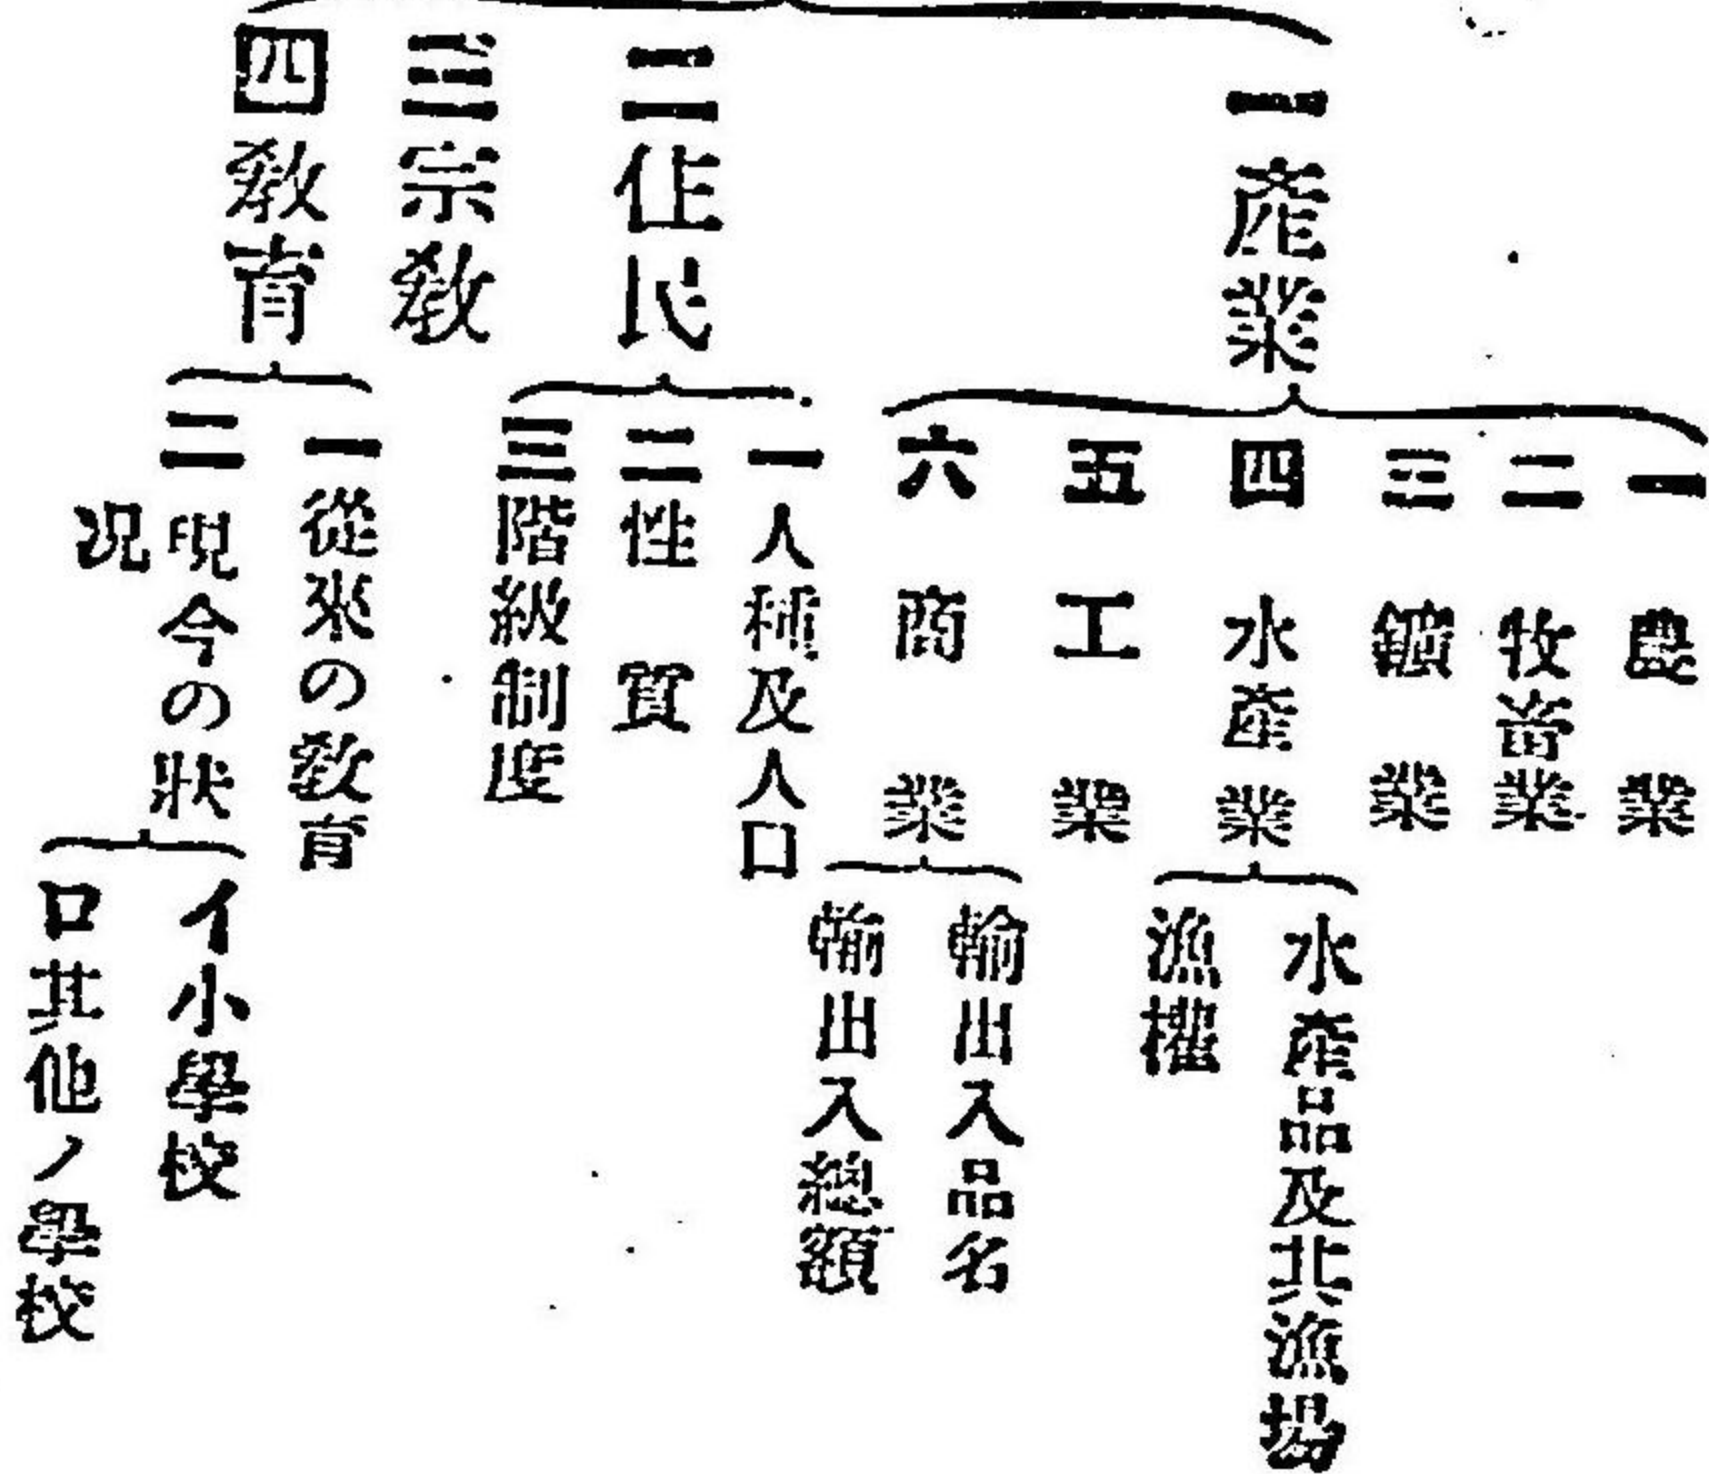 一 產業
一 農業
二 牧畜業
三 鑛業
四 水產業
水產品及其漁場
漁權
五 工業
六 商業
輸出入品名
輸出入總額
二 住民
一 人種及人口
二 性質
三 階級制度
三 宗敎
四 敎育
一 從來の敎育
二 現今の狀
況
イ 小學校
ロ 其他ノ學校